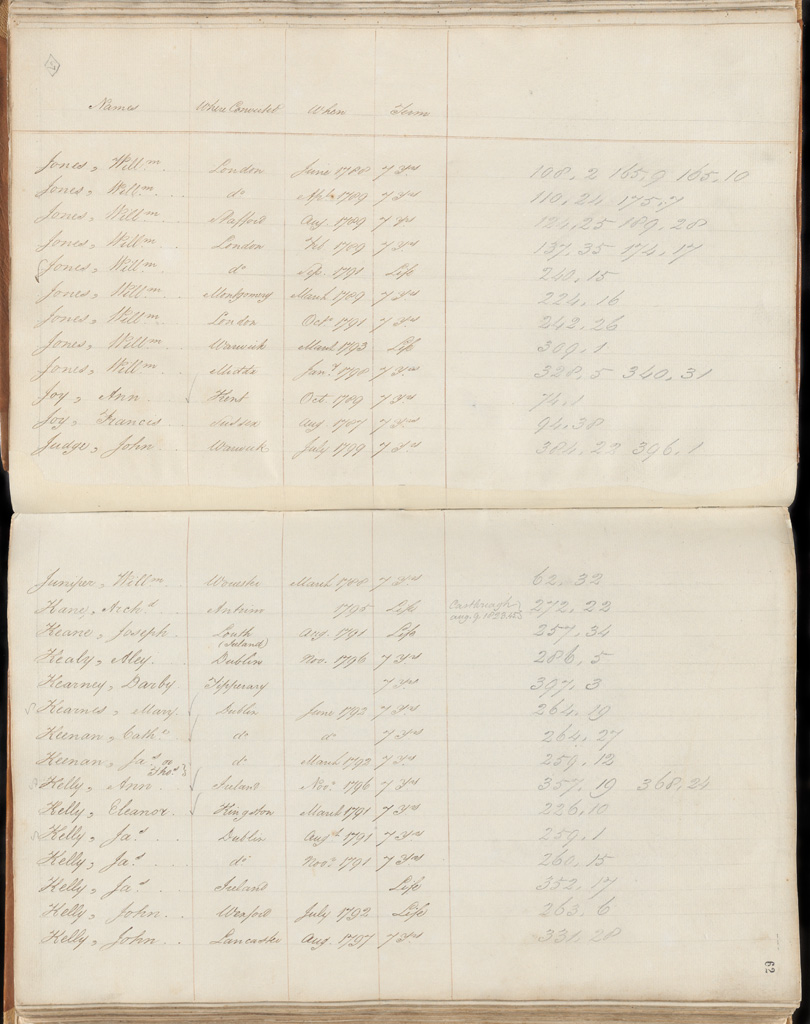 Names Where Convicted When Term
Jones, Willm London June 1788 7 Yrs 108.2 165.9 165.10
Jones, Willm do 1789 7 Yrs 110.24 175.7
Jones, Willm Stafford Aug. 1789 7 Yrs 124.25 189.28
Jones, Willm London Feb. 1789 7 Yrs 137.35 174.17
Jones, Willm do Sep. 1791 Life 240.15
Jones, Willm Montgomery March 1789 7 Yrs 224.16
Jones, Willm London Octr 1791 7 Yrs 242.26
Jones, Willm Warwick March 1793 Life 309.1
Jones, Willm Middx Jany 1798 7 Yrs 328.5 340.31
Joy, Ann Kent Oct. 1789 7 Yrs 74.1
Joy, Francis Sussex Aug. 1787 7 Yrs 94.38
Judge, John Warwick July 1799 7 Yrs 384.22 396.1
Juniper, Willm Worcester March 1788 7 Yrs 62.32
Kane, Archd Antrim 1795 Life 272.22
aug. 9.
Keane, Joseph Louth (Ireland) Aug. 1791 Life 257.34
Kealy, Aley Dublin Nov. 1796 7 Yrs 286.5
Kearney, Darby Tipperary 7 Yrs 397.3
Kearnes, Mary Dublin June 1792 7 Yrs 264.19
Keenan, Cathe do do 7 Yrs 264.27
Keenan, Jas or Thos do March 1792 7 Yrs 259.12
Kelly, Ann Ireland Novr 1796 7 Yrs 357.19 368.24
Kelly, Eleanor Kingston March 1791 7 Yrs 226.10
Kelly, Jas Dublin Augst 1791 7 Yrs 259.1
Kelly, Jas do Novr 1791 7 Yrs 260.15
Kelly, Jas Ireland Life 352.17
Kelly, John Wexford July 1792 Life 263.6
Kelly, John Lancaster Aug. 1797 7 Yrs 331.28
62